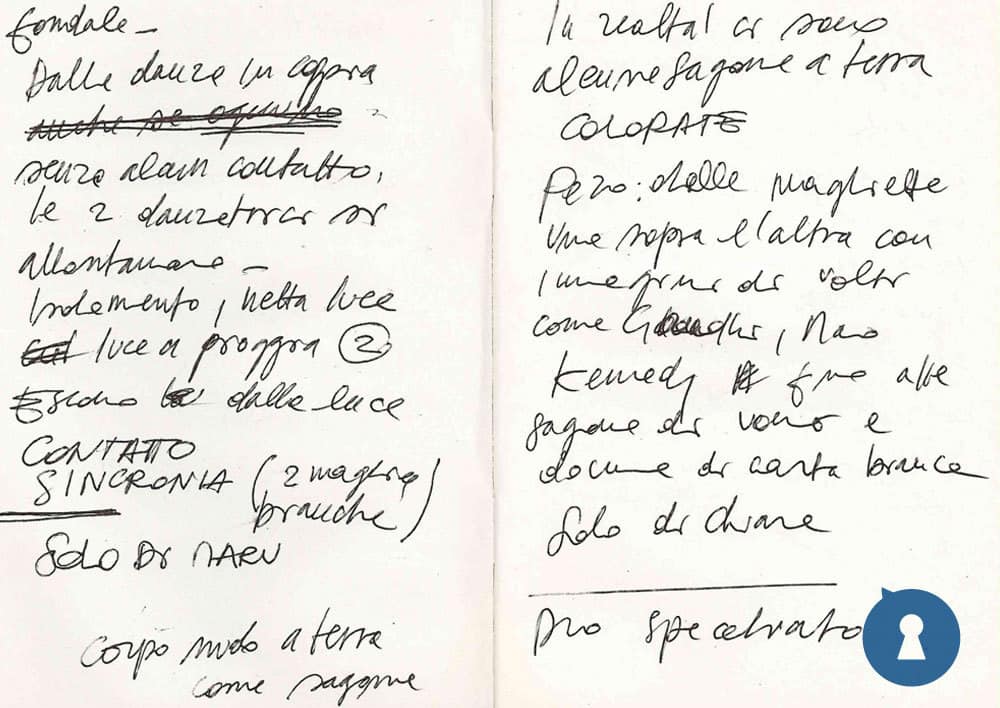 fondale -
Dalle danze in coppia
anche se ognuno
senza alcun contatto,
le 2 danzatrici si
allontanano -
Isolamento, netta luce
luce a pioggia 2
Escono dalla luce
CONTATTO
SINCRONIA (2 maglie
bianche)
SOLO DI MARU
Corpo nudo a terra
come sagome
In realtà ci sono
alcune sagome a terra
COLORATE
Pezzo: delle magliette
una sopra l'altra con
immagini di volti
come Gandhi, Mao
Kennedy fino alle
sagome di uomo e
donne di carta bianca
Solo di Chiara
Duo specchiato